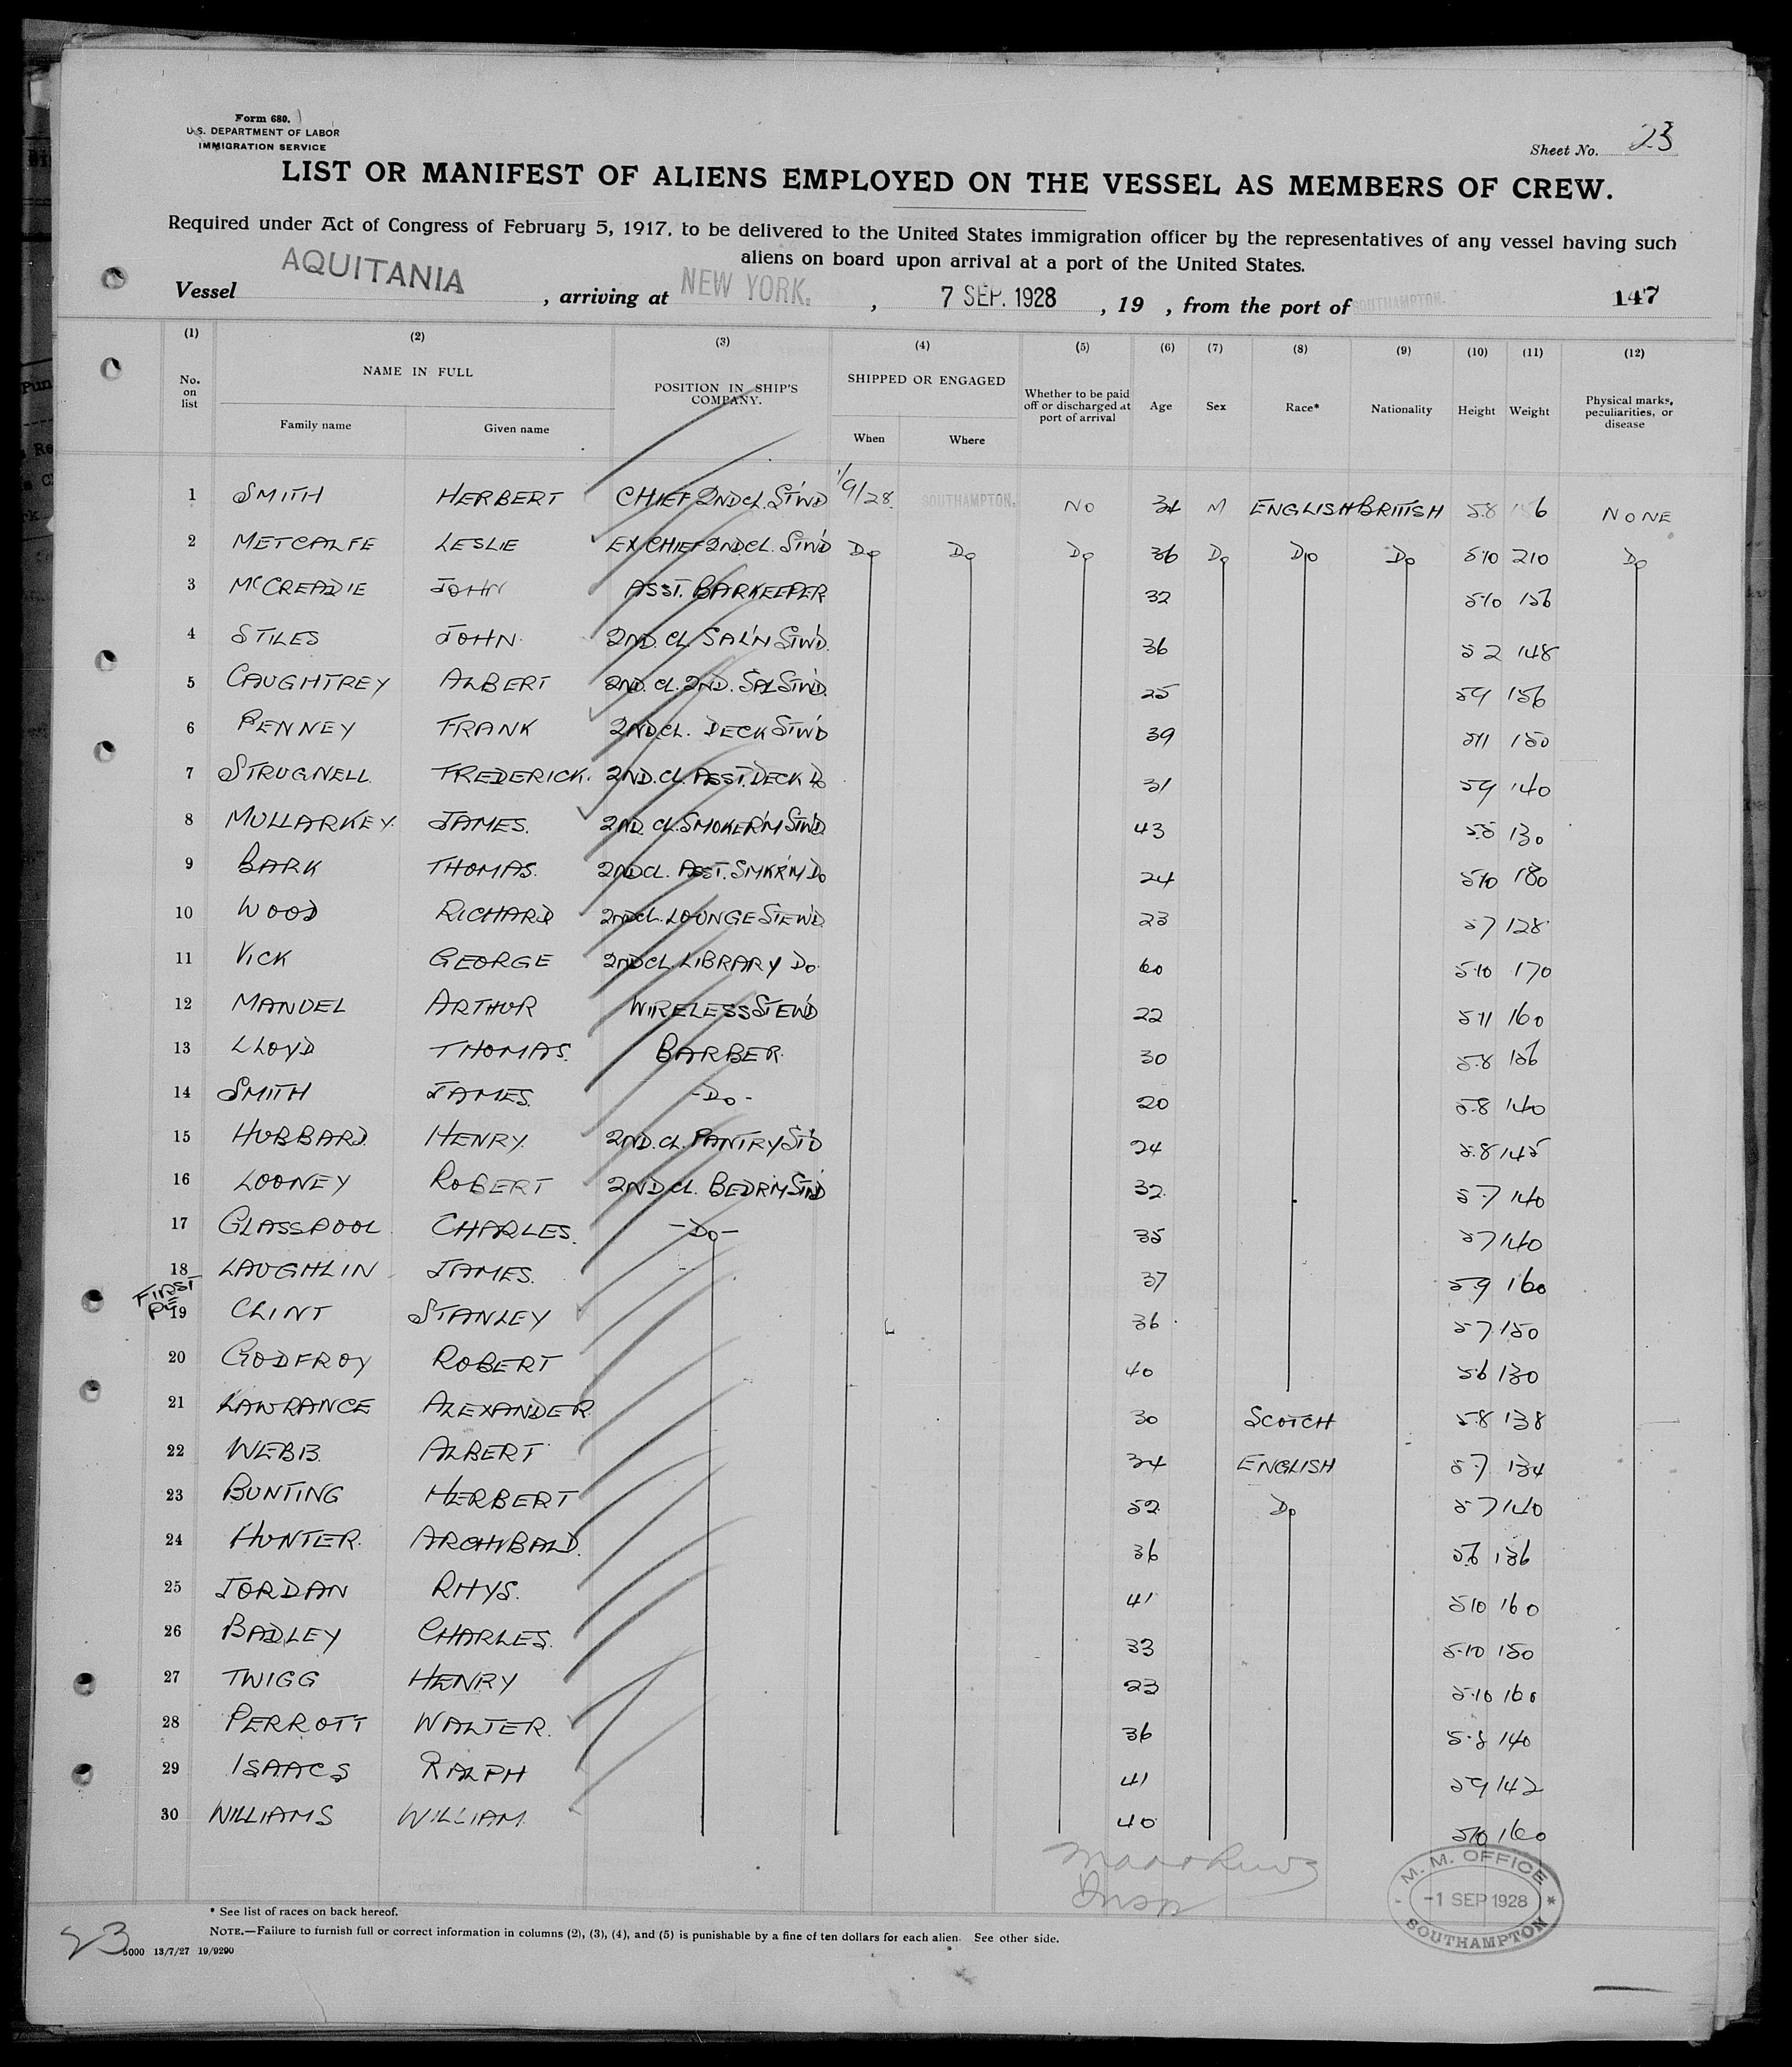 Form 680.
U.S. DEPARTMENT OF LABOR
IMMIGRATION SERVICE
Sheet No. 23
LIST OR MANIFEST OF ALIENS EMPLOYED ON THE VESSEL AS MEMBERS OF CREW.
Required under Act of Congress of February 5, 1917, to be delivered to the United States immigration officer by the representatives of any vessel having such
aliens on board upon arrival at a port of the United States.
Vessel AQUITANIA , arriving at NEW YORK. , 7 SEP. 1928 , 19 , from the port of SOUTHAMPTON. 147
(1) (2) (3) (4) (5) (6) (7) (8) (9) (10) (11) (12)
No. on list NAME IN FULL Family name Given name POSITION IN SHIP'S COMPANY. SHIPPED OR ENGAGED When Where Whether to be paid off or discharged at port of arrival Age Sex Race* Nationality Height Weight Physical marks, peculiarities, or disease
1 SMITH HERBERT CHIEF 2ND CL. ST'WD 1/9/28 SOUTHAMPTON. NO 34 M ENGLISH BRITISH 5.8 156 NONE
2 METCALFE LESLIE EX CHIEF 2ND CL. STW'D Do Do Do 36 Do Do Do 5.10 210 Do
3 McCREADIE JOHN ASST. BARKEEPER 32 5.10 156
4 STILES JOHN 2ND. CL. SAL'N STW'D. 36 5 2 148
5 CAUGHTREY ALBERT 2ND. CL. 2ND. SAL STW'D. 25 5 9 156
6 PENNEY FRANK 2ND CL. DECK STW'D 39 5 11 150
7 STRUGNELL FREDERICK. 2ND. CL. ASST. DECK Do 31 5 9 140
8 MULLARKEY. JAMES. 2ND. CL. SMOKER'M STW'D. 43 5.5 130
9 BARK THOMAS. 2ND CL. ASST. SMKR'M Do 24 5 10 180
10 WOOD RICHARD 2ND CL. LOUNGE STEW'D. 23 5 7 128
11 VICK GEORGE 2ND CL. LIBRARY Do. 60 5.10 170
12 MANUEL ARTHUR WIRELESS STEW'D 22 5 11 160
13 LLOYD THOMAS. BARBER. 30 5.8 156
14 SMITH JAMES. -Do- 20 5.8 140
15 HUBBARD. HENRY. 2ND. CL. PANTRY ST'D 24 5.8 145
16 LOONEY ROBERT 2ND CL. BEDR'M STW'D 32. 5.7 140
17 GLASSPOOL CHARLES. -Do- 35 5 7 140
18 LAUGHLIN JAMES. 37 5 9 160
FIRST
PE
19 CLINT STANLEY 36 5 7 150
20 GODFROY ROBERT 40 5 6 130
21 LAWRANCE ALEXANDER. 30 SCOTCH 5.8 138
22 WEBB. ALBERT 34 ENGLISH 5.7 134
23 BUNTING HERBERT 52 Do 5 7 140
24 HUNTER. ARCHIBALD. 36 5.6 136
25 JORDAN RHYS. 41 5 10 160
26 BADLEY CHARLES. 33 5.10 150
27 TWIGG HENRY 23 5.10 160
28 PERROTT WALTER. 36 5.8 140
29 ISAACS RALPH 41 5 9 142
30 WILLIAMS WILLIAM. 40 5 10 160
M. M. OFFICE
-1 SEP 1928 *
SOUTHAMPTON
* See list of races on back hereof.
NOTE.—Failure to furnish full or correct information in columns (2), (3), (4), and (5) is punishable by a fine of ten dollars for each alien. See other side.
23
5000 13/7/27 19/9290